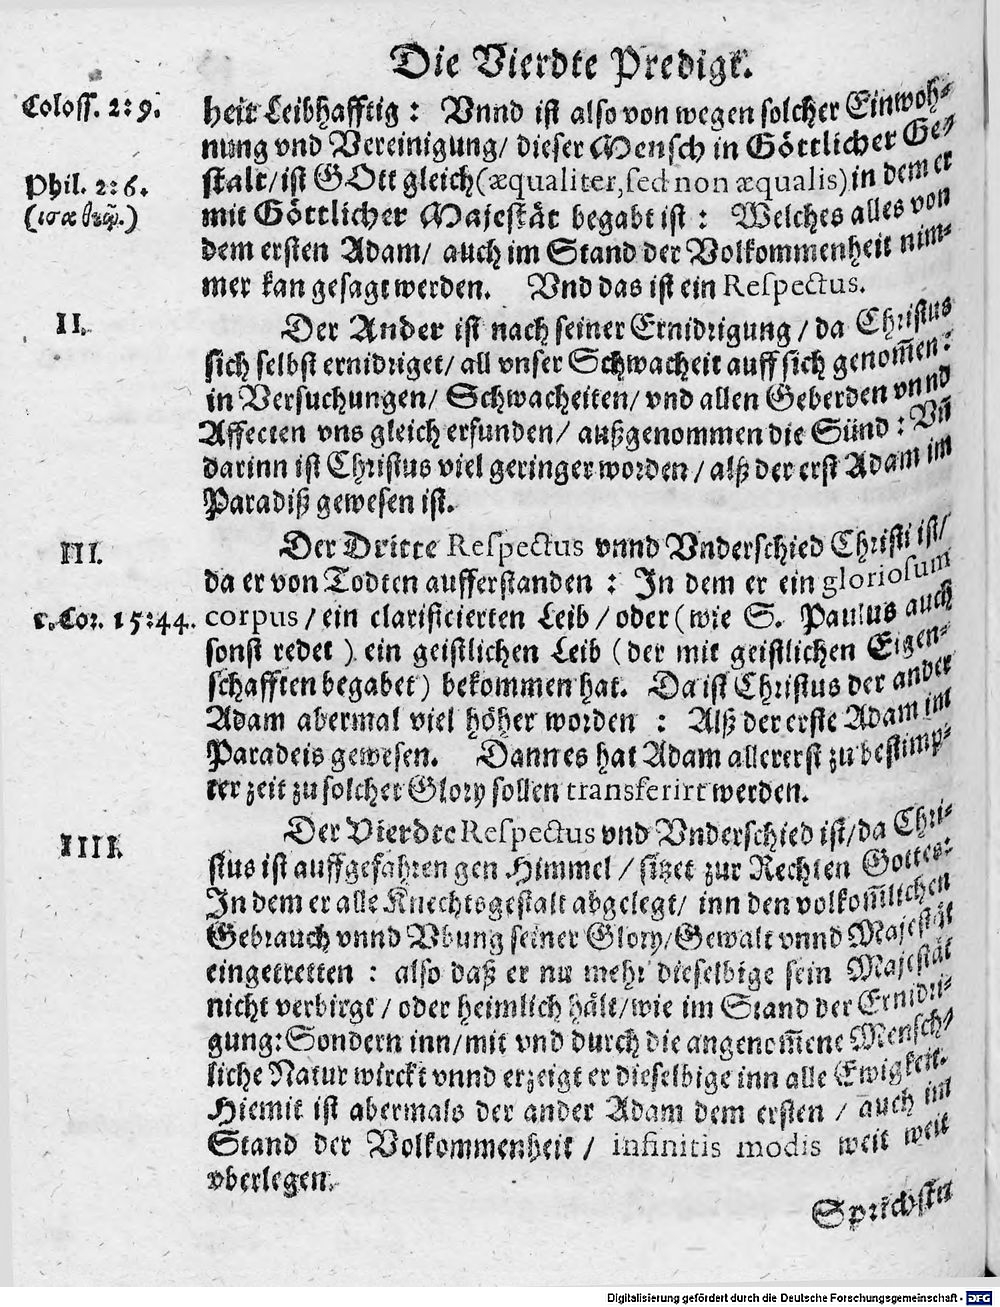 Die Vierdte Predigt.
Coloss. 2:9.
heit Leibhafftig: Vnnd ist also von wegen solcher Einwoh-
nung vnd Vereinigung/ dieser Mensch in Göttlicher Ge-
Phil. 2:6.
stalt/ ist GOtt gleich (æqualiter, sed non æqualis) in dem er
(ισα θεῷ.)
mit Göttlicher Majestät begabt ist: Welches alles von
dem ersten Adam/ auch im Stand der Volkommenheit nim-
mer kan gesagt werden. Vnd das ist ein Respectus.
II.
Der Ander ist nach seiner Ernidrigung/ da Christus
sich selbst ernidriget/ all vnser Schwacheit auff sich genom̃en:
in Versuchungen/ Schwacheiten/ vnd allen Geberden vnnd
Affecten vns gleich erfunden/ außgenommen die Sünd: Vn̄
darinn ist Christus viel geringer worden/ alß der erst Adam im
Paradiß gewesen ist.
III.
Der Dritte Respectus vnnd Vnderschied Christi ist/
da er von Todten aufferstanden: In dem er ein gloriosum
1. Cor. 15:44.
corpus/ ein clarificierten Leib/ oder (wie S. Paulus auch
sonst redet) ein geistlichen Leib (der mit geistlichen Eigen-
schafften begabet) bekommen hat. Da ist Christus der ander
Adam abermal viel höher worden: Alß der erste Adam im
Paradeis gewesen. Dann es hat Adam allererst zu bestimp-
ter zeit zu solcher Glory sollen transferirt werden.
IIII.
Der Vierdte Respectus vnd Vnderschied ist/ da Chri-
stus ist auffgefahren gen Himmel/ sitzet zur Rechten Gottes:
In dem er alle Knechtsgestalt abgelegt/ inn den volkom̃lichen
Gebrauch vnnd Vbung seiner Glory/ Gewalt vnnd Majestät
eingetretten: also daß er nu mehr dieselbige sein Majestät
nicht verbirgt/ oder heimlich hält/ wie im Stand der Ernidri-
gung: Sondern inn/ mit vnd durch die angenom̃ene Mensch-
liche Natur wirckt vnnd erzeigt er dieselbige inn alle Ewigkeit.
Hiemit ist abermals der ander Adam dem ersten/ auch im
Stand der Volkommenheit/ infinitis modis weit weit
vberlegen.
Sprichstu
Digitalisierung gefördert durch die Deutsche Forschungsgemeinschaft - DFG